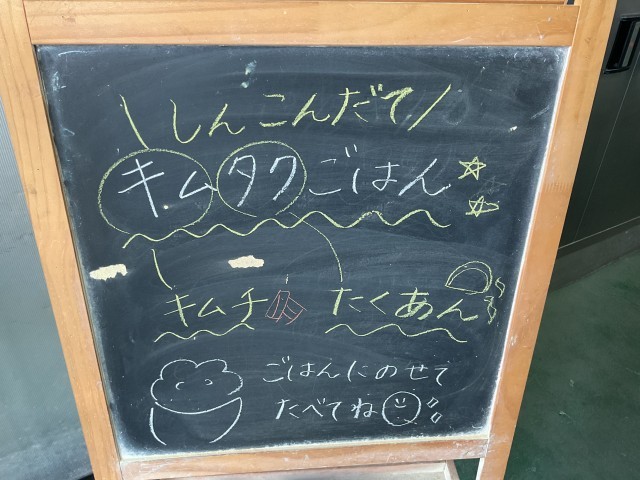 \しんこんだて/
キムタクごはん
キムチ たくあん
ごはんにのせて
たべてね